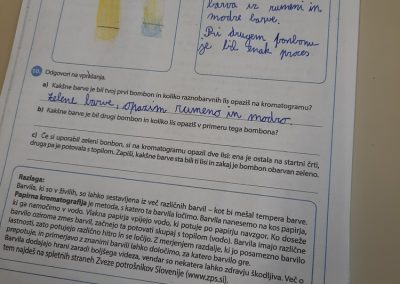 barva iz rumeni in
modre barve.
Pri drugem bonbonu
je bil enak proces
10. Odgovori na vprašanja.
a) Kakšne barve je bil tvoj prvi bombon in koliko raznobarvnih lis opaziš na kromatogramu?
Zelene barve, opazim rumeno in modro.
b) Kakšne barve je bil drugi bombon in koliko lis opaziš v primeru tega bombona?
c) Če si uporabil zeleni bonbon, si na kromatogramu opazil dve lisi: ena je ostala na startni črti,
druga pa je potovala s topilom. Zapiši, kakšne barve sta bili ti lisi in zakaj je bonbon obarvan zeleno.
Razlaga:
Barvila, ki so v živilih, so lahko sestavljena iz več različnih barvil – kot bi mešal tempera barve.
Papirna kromatografija je metoda, s katero ta barvila ločimo. Barvila nanesemo na kos papirja,
ki ga namočimo v vodo. Vlakna papirja vpijejo vodo, ki potuje po papirju navzgor. Ko doseže
barvilo oziroma zmes barvil, začnejo ta potovati skupaj s topilom (vodo). Barvila imajo različne
lastnosti, zato potujejo različno hitro in se ločijo. Z merjenjem razdalje, ki jo posamezno barvilo
prepotuje, in primerjavo z znanimi barvili lahko določimo, za katero barvilo gre.
Barvila dodajajo hrani zaradi boljšega videza, vendar so nekatera lahko zdravju škodljiva. Več o
tem najdeš na spletnih straneh Zveze potrošnikov Slovenije (www.zps.si).